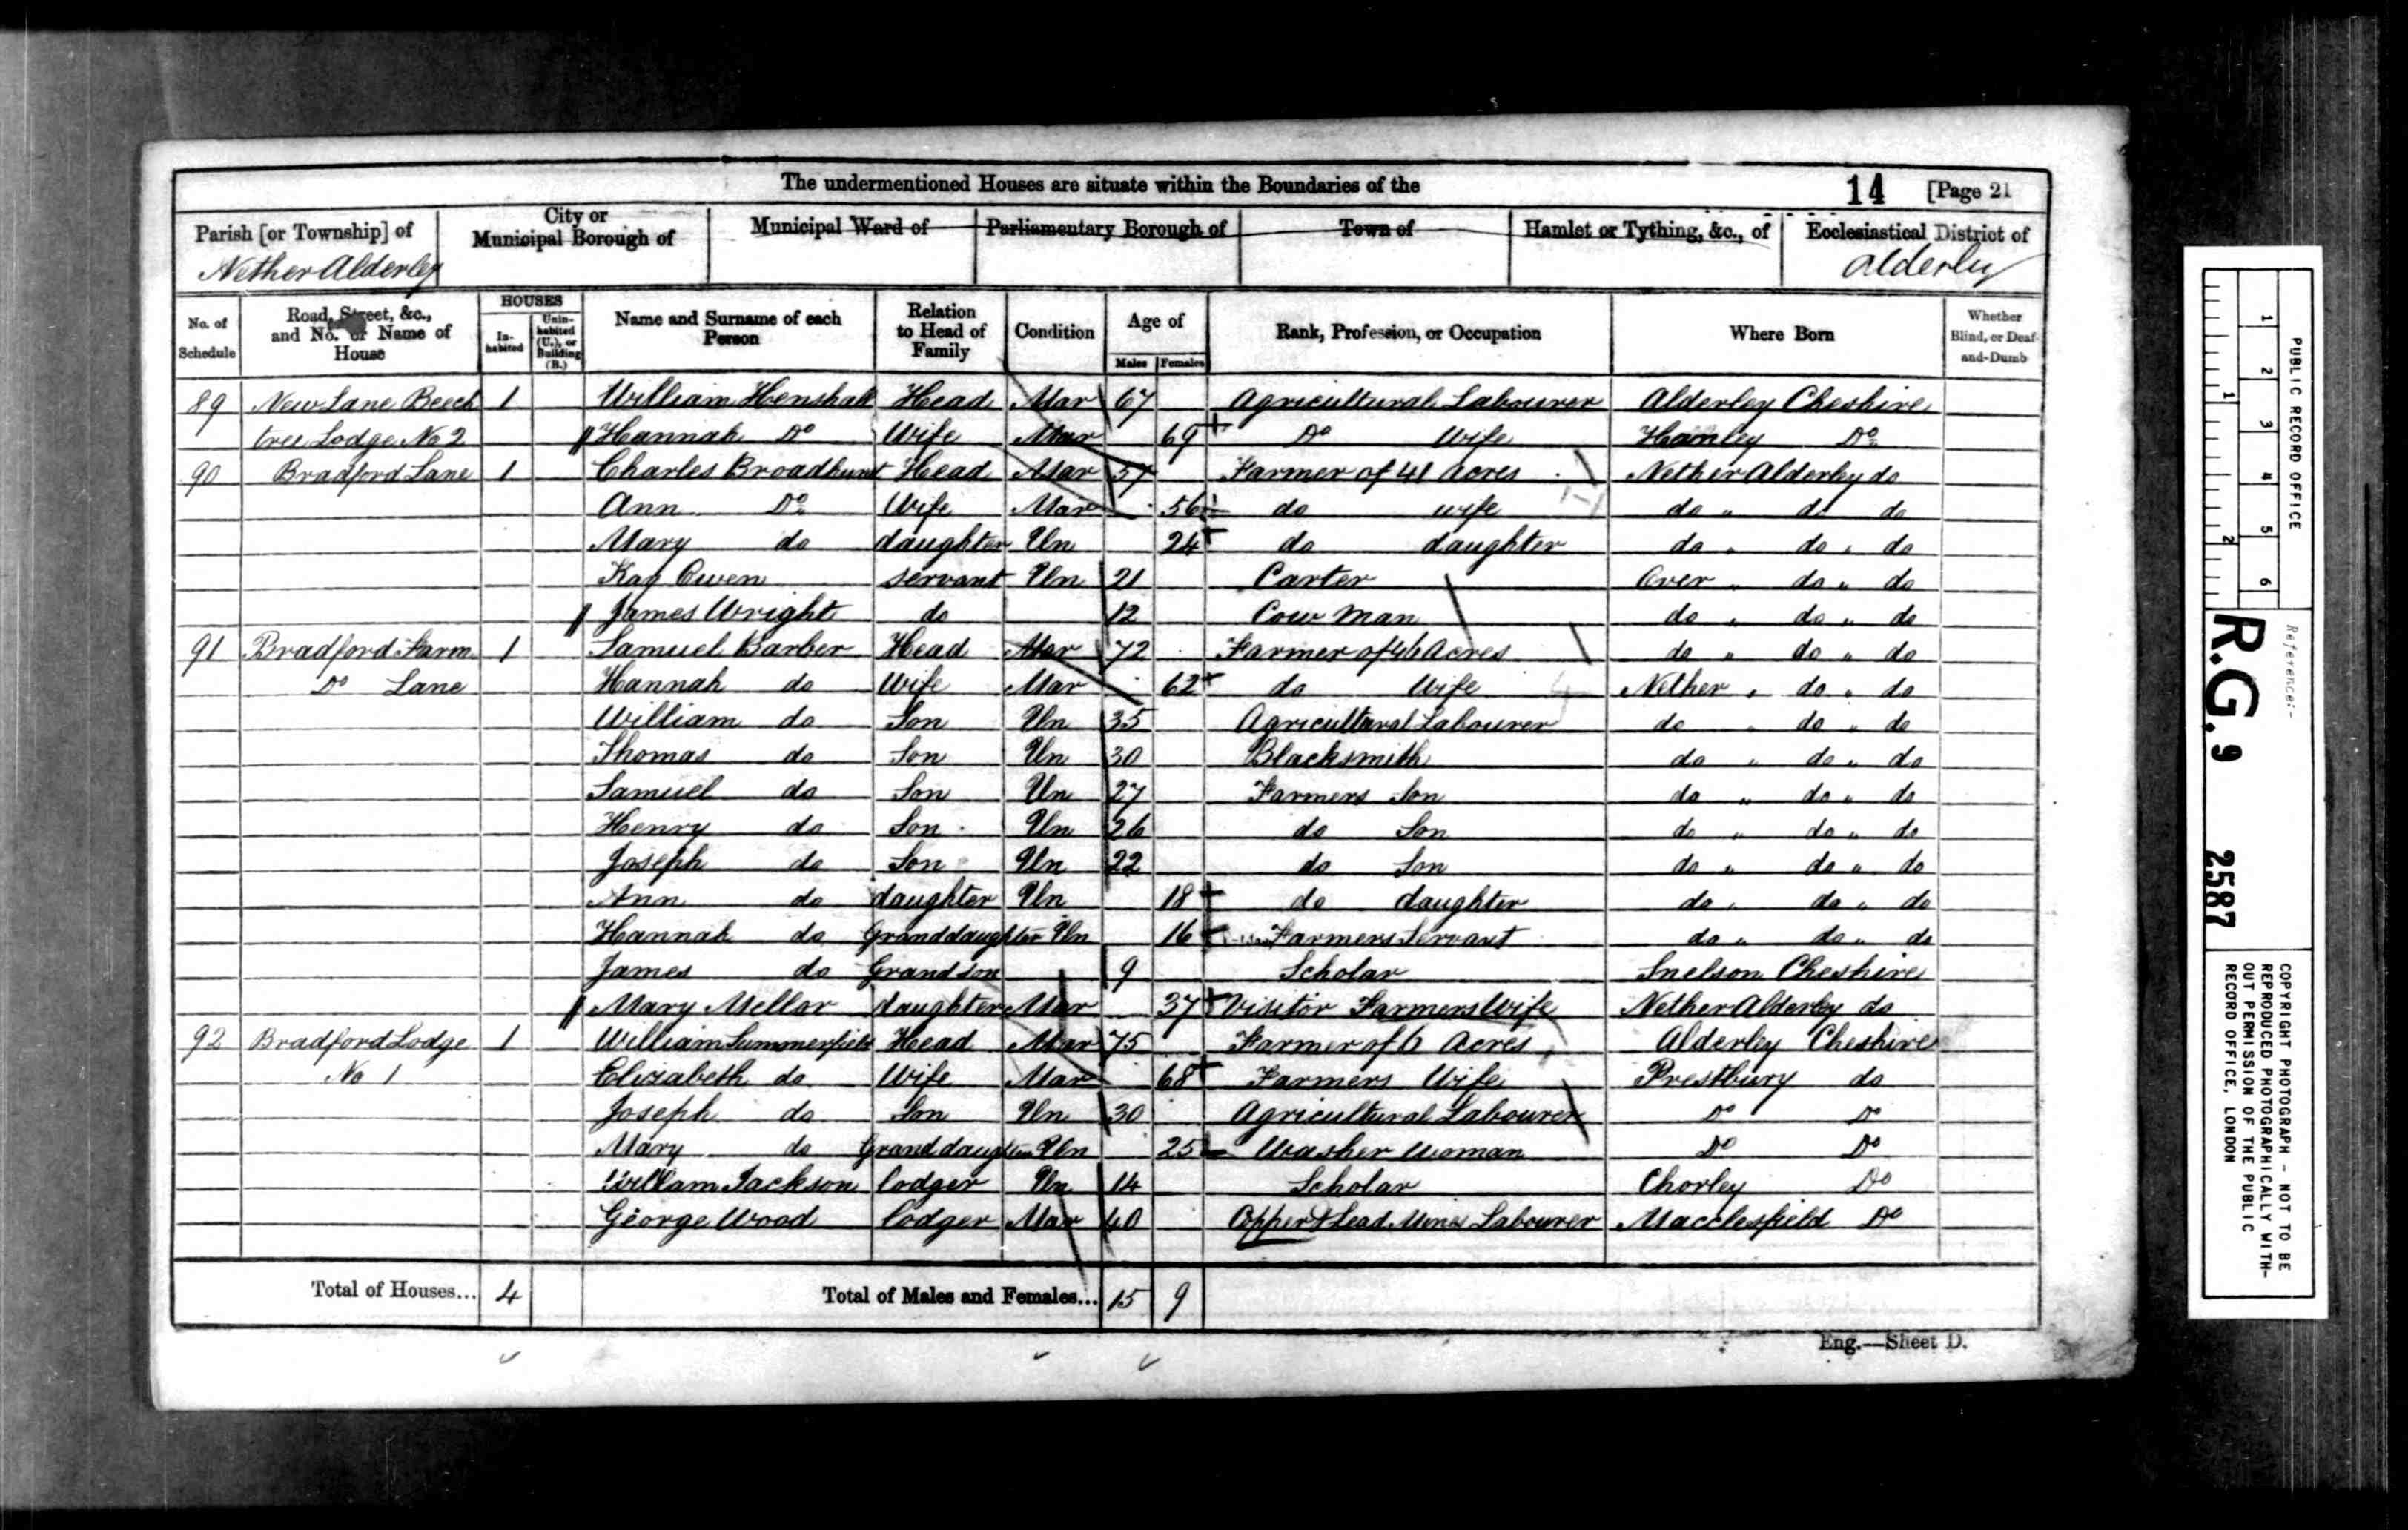 The undermentioned Houses are situate within the Boundaries of the
14 [Page 21
Parish [or Township] of
Nether Alderley
City or Municipal Borough of
Municipal Ward of
Parliamentary Borough of
Town of
Hamlet or Tything, &c., of
Ecclesiastical District of
Alderley
No. of Schedule
Road, Street, &c., and No. or Name of House
HOUSES
In-habited
Unin-habited (U.), or Building (B.)
Name and Surname of each Person
Relation to Head of Family
Condition
Age of
Males Females
Rank, Profession, or Occupation
Where Born
Whether Blind, or Deaf-and-Dumb
89 New Lane Beech 1 William Henshall Head Mar 67 Agricultural Labourer Alderley Cheshire
tree Lodge No 2 Hannah Do Wife Mar 69 Do Wife Do
90 Bradford Lane 1 Charles Broadhurst Head Mar 57 Farmer of 41 acres Nether Alderley do
Ann Do Wife Mar 56 do wife do " do do
Mary do daughter Un 24 do daughter do " do " do
Kay Owen servant Un 21 Carter Over " do " do
James Wright do 12 Cow Man do " do " do
91 Bradford Farm 1 Samuel Barber Head Mar 72 Farmer of 46 Acres do " do " do
Do Lane Hannah do Wife Mar 62 do Wife Nether " do " do
William do Son Un 35 Agricultural Labourer do " do " do
Thomas do Son Un 30 Blacksmith do " do " do
Samuel do Son Un 27 Farmers Son do " do " do
Henry do Son Un 26 do Son do " do " do
Joseph do Son Un 22 do Son do " do " do
Ann do daughter Un 18 do daughter do " do " do
Hannah do Granddaughter Un 16 Farmers Servant do " do " do
James do Grandson 9 Scholar Snelson Cheshire
Mary Mellor daughter Mar 37 Visitor Farmers Wife Nether Alderley do
92 Bradford Lodge 1 William Summerfield Head Mar 75 Farmer of 6 Acres Alderley Cheshire
No 1 Elizabeth do Wife Mar 68 Farmers Wife Prestbury do
Joseph do Son Un 30 Agricultural Labourer Do Do
Mary do Granddaughter Un 25 Washer Woman Do Do
William Jackson lodger Un 14 Scholar Chorley Do
George Wood lodger Mar 40 Copper & Lead Mines Labourer Macclesfield Do
Total of Houses... 4 Total of Males and Females... 15 9
Eng.—Sheet D.
1 2 3 4 5 6
1 2
PUBLIC RECORD OFFICE
Reference:-
R.G. 9 2587
COPYRIGHT PHOTOGRAPH - NOT TO BE
REPRODUCED PHOTOGRAPHICALLY WITH-
OUT PERMISSION OF THE PUBLIC
RECORD OFFICE, LONDON